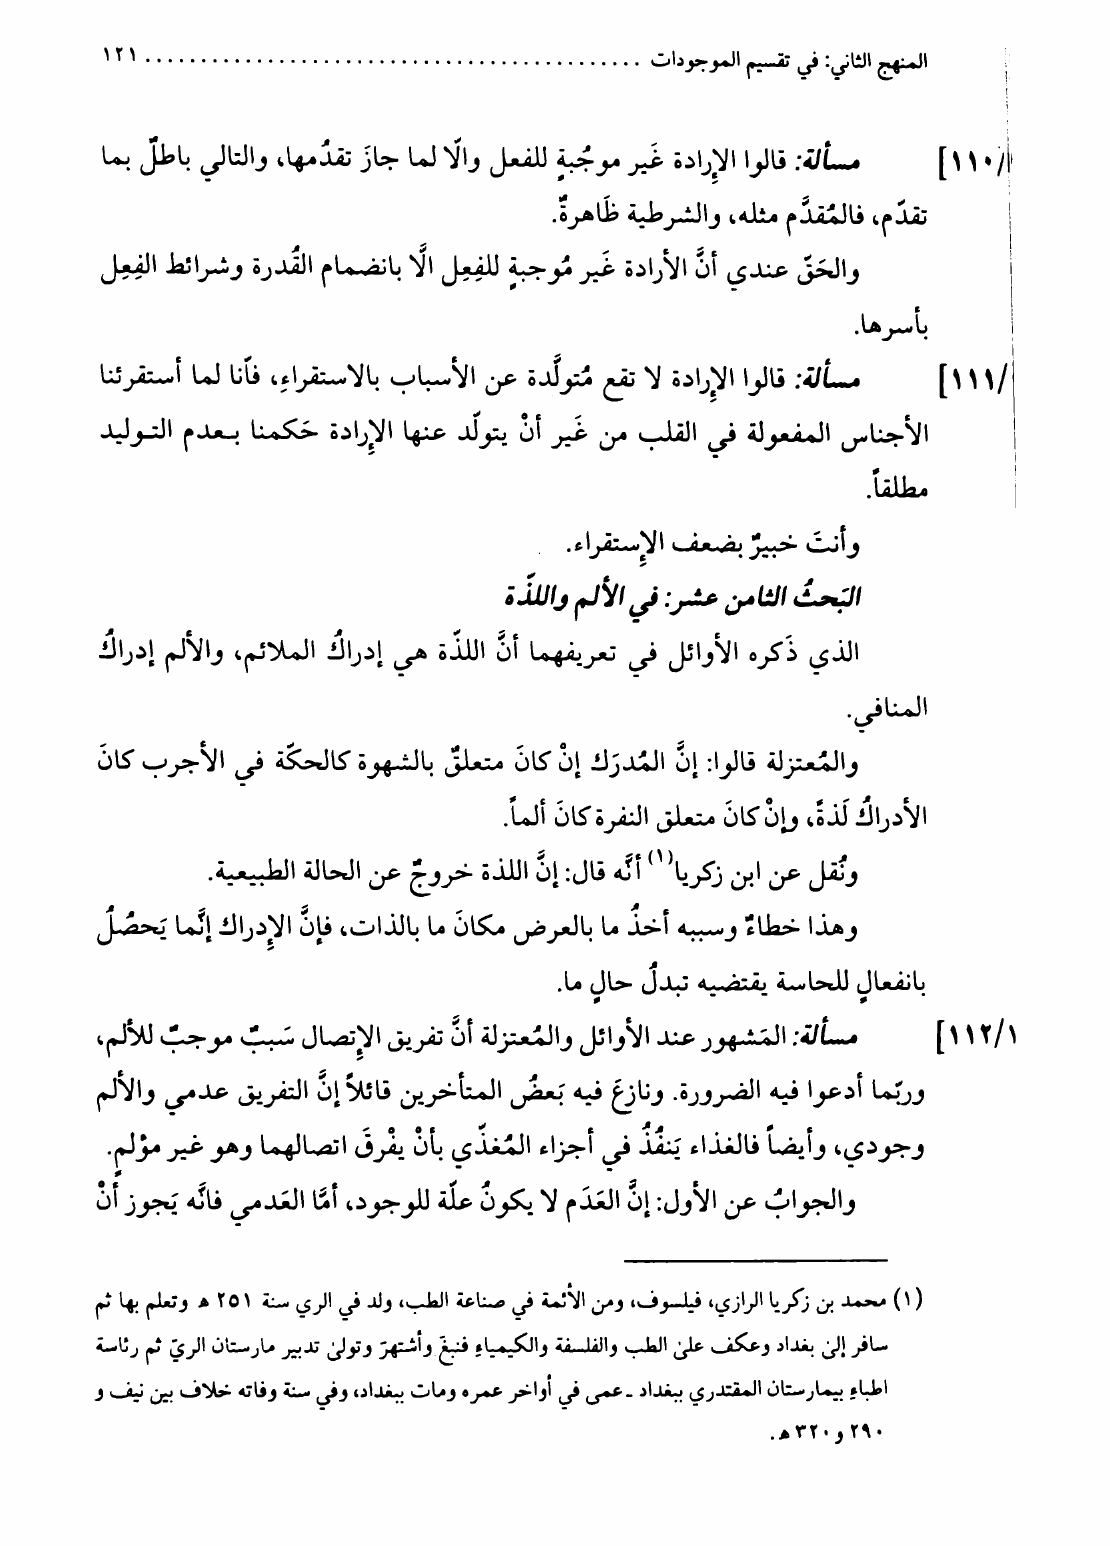 المنهج الثاني: في تقسيم الموجودات ............................................ ١٢١
[١١٠/ مسألة: قالوا الإِرادة غَير موجُبةٍ للفعل والّا لما جازَ تقدُمها، والتالي باطلٌ بما
تقدّم، فالمُقدَّم مثله، والشرطية ظَاهرةٌ.
والحَقّ عندي أنَّ الأرادة غَير مُوجبةٍ للفِعِل الّا بانضمام القُدرة وشرائط الفِعِل
بأسرها.
[١١١/ مسألة: قالوا الإِرادة لا تقع مُتولَّدة عن الأسباب بالاستقراءِ، فأنا لما أستقرئنا
الأجناس المفعولة في القلب من غَير أنْ يتولّد عنها الإِرادة حَكمنا بعدم التوليد
مطلقاً.
وأنتَ خبيرٌ بضعف الإِستقراء.
البَحثُ الثامن عشر: في الألم واللذّة
الذي ذَكره الأوائل في تعريفهما أنَّ اللذّة هي إدراكُ الملائم، والألم إدراكُ
المنافي.
والمُعتزلة قالوا: إنَّ المُدرَك إنْ كانَ متعلقٌ بالشهوة كالحكّة في الأجرب كانَ
الأدراكُ لَذةً، وإنْ كانَ متعلق النفرة كانَ ألماً.
ونُقل عن ابن زكريا(١) أنَّه قال: إنَّ اللذة خروجٌ عن الحالة الطبيعية.
وهذا خطاءٌ وسببه أخذُ ما بالعرض مكانَ ما بالذات، فإنَّ الإِدراك إنَّما يَحصُلُ
بانفعالٍ للحاسة يقتضيه تبدلُ حالٍ ما.
[١١٢/١ مسألة: المَشهور عند الأوائل والمُعتزلة أنَّ تفريق الإِتصال سَببٌ موجبٌ للألم،
وربّما أدعوا فيه الضرورة. ونازعَ فيه بَعضُ المتأخرين قائلاً إنَّ التفريق عدمي والألم
وجودي، وأيضاً فالغذاء يَنفُذُ في أجزاء المُغذّي بأنْ يفْرقَ اتصالهما وهو غير مؤلمٍ.
والجوابُ عن الأول: إنَّ العَدَم لا يكونُ علّة للوجود، أمَّا العَدمي فانَّه يَجوز أَنْ
(١) محمد بن زكريا الرازي، فيلسوف، ومن الأئمة في صناعة الطب، ولد في الري سنة ٢٥١ ه وتعلم بها ثم
سافر إلىٰ بغداد وعكف علىٰ الطب والفلسفة والكيمياء فنبغَ وأشتهرَ وتولىٰ تدبير مارستان الريّ ثم رئاسة
اطباءِ بيمارستان المقتدري ببغداد - عمى في أواخر عمره ومات ببغداد، وفي سنة وفاته خلاف بين نيف و
٢٩٠ و ٣٢٠ ه.